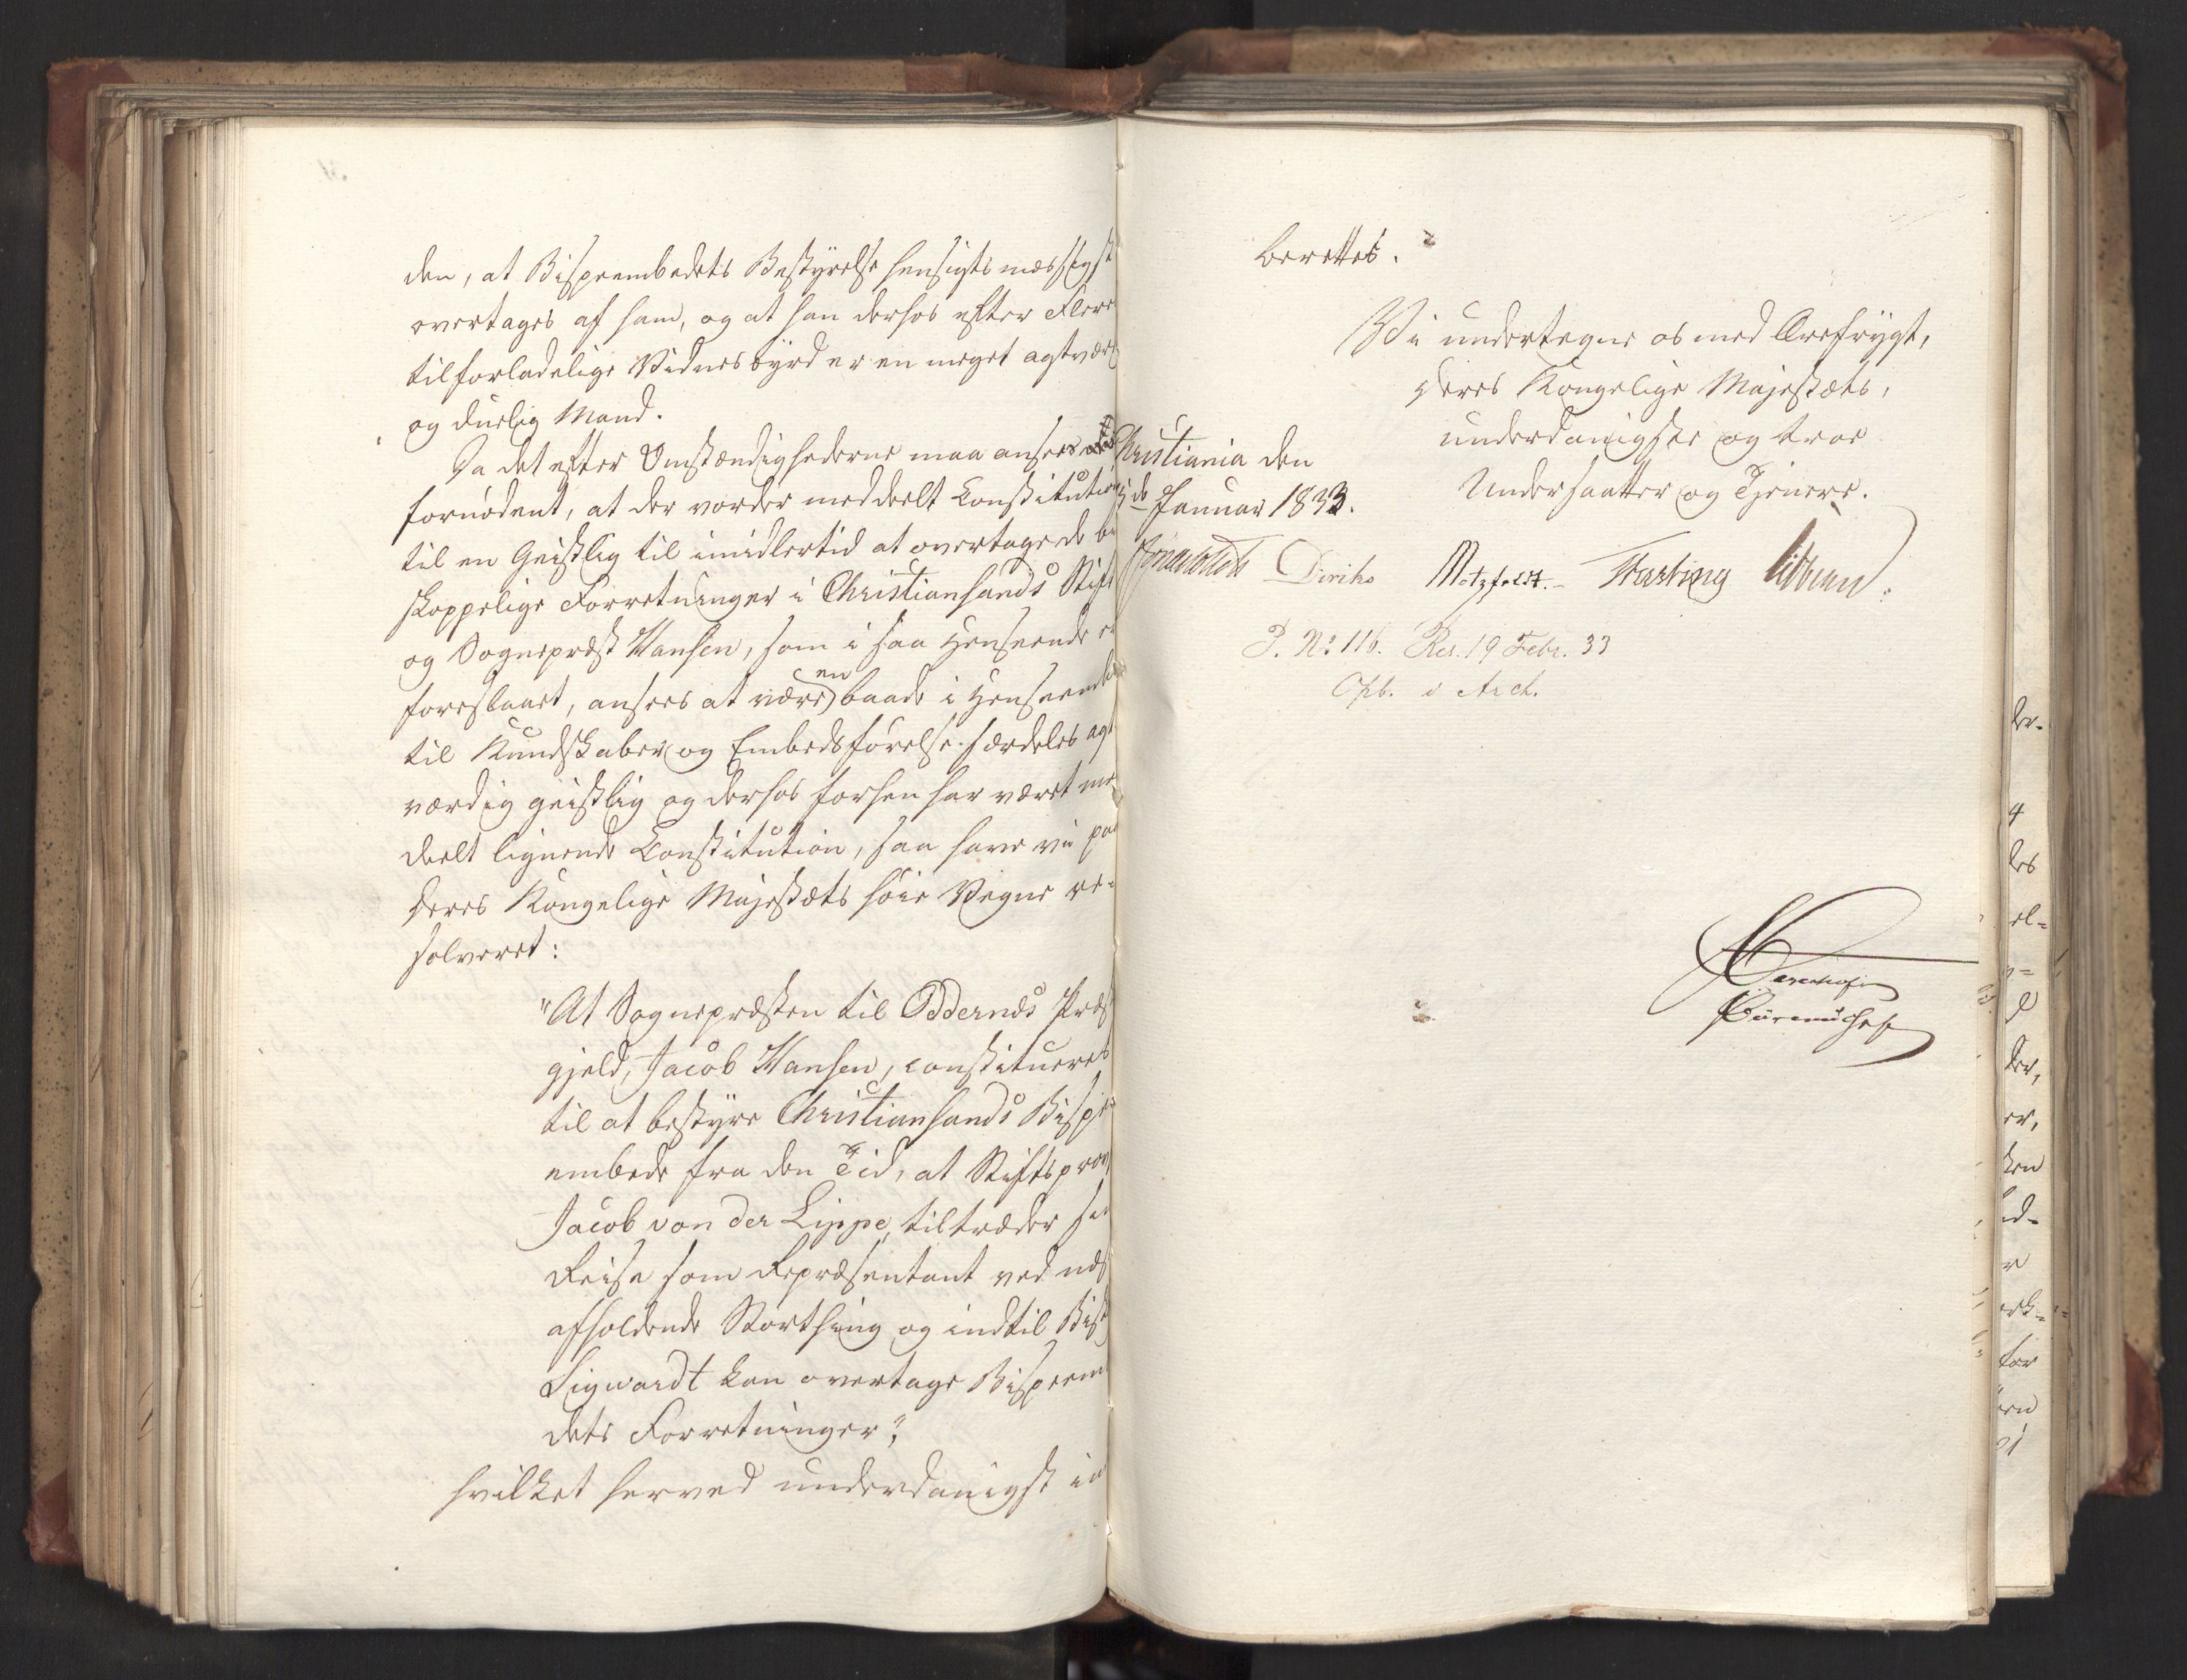 den, at Bispeembedets Bestyrelse hensigtsmæssigst
overtages af ham, og at han derhos efter Flere
tilforladelige Vidnesbyrd er en meget agtvær
og duelig Mand.
Da det efter Omstændighederne maa ansees
fornødent, at der vorder meddeelt Constitution
til en Geistlig til imidlertid at overtage de bi
skoppelige Forretninger i Christiansands Stift
og Sognepræst Hansen, som i saa Henseende er
foreslaaet, ansees at være en baade i Henseende
til Kundskaber og Embedsførelse særdeles agt
værdig geistlig og derhos forhen har været me
deelt lignende Constitution, saa have vi paa
Deres Kongelige Majestæts høie Vegne re-
solveret:
"At Sognepræsten til Oddernæs Præs
gjeld, Jacob Hansen, constitueres
til at bestyre Christiansands Bispe
embede fra den Tid, at Stiftsprov
Jacob von der Lippe, tiltræder sin
Reise som Repræsentant ved næs
afholdende Storthing og indtil Bisk
Sigwardt kan overtage Bispeem
dets Forretninger";
hvilket herved underdanigst in
berettes.
Vi undertegne os med Ærefrygt,
Deres Kongelige Majestæts,
underdanigste og troe
Undersaatter og Tjenere.
Christiania den
de Januar 1833.
Diriks Motzfeldt. Fasting Vibe
P. No 116. Res. 19 Febr. 33
Opb. i Arch.